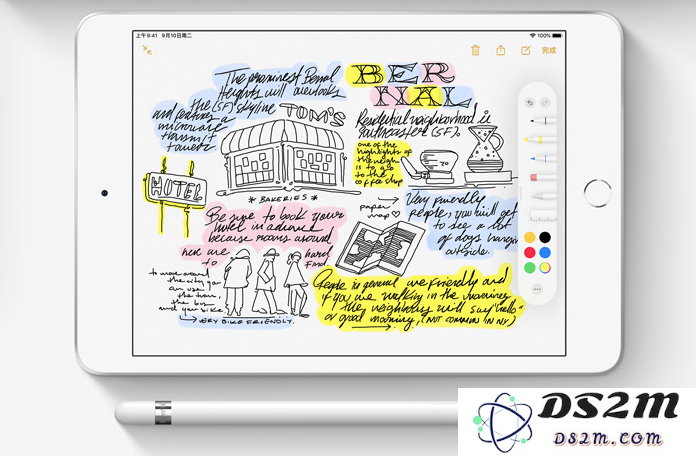 上午9:41 9月10日周二
100%
完成
The prominent Bernal
Heights will overlooks
the (SF) skyline
and features a
microwave
transmit
tower
BER
NAL
TOM'S
Residential neighborhood in
southeastern (SF).
one of the
highlights of
the neigh
is to go
to the
coffee shop
HOTEL
* BAKERIES *
paper
map
Very friendly
people, you will get
to see a lot
of dogs hangin
outside.
Be sure to book your
hotel in advance
because rooms around
here are
to
hard
find.
to move around
the city you
can use
the train,
the bus
and your bike
VERY BIKE FRIENDLY.
People in general are friendly and
if you are walking in the morning
the neighbors will say "hello"
or good morning, (NOT COMMON IN NY)
DS2M
DS2M.COM